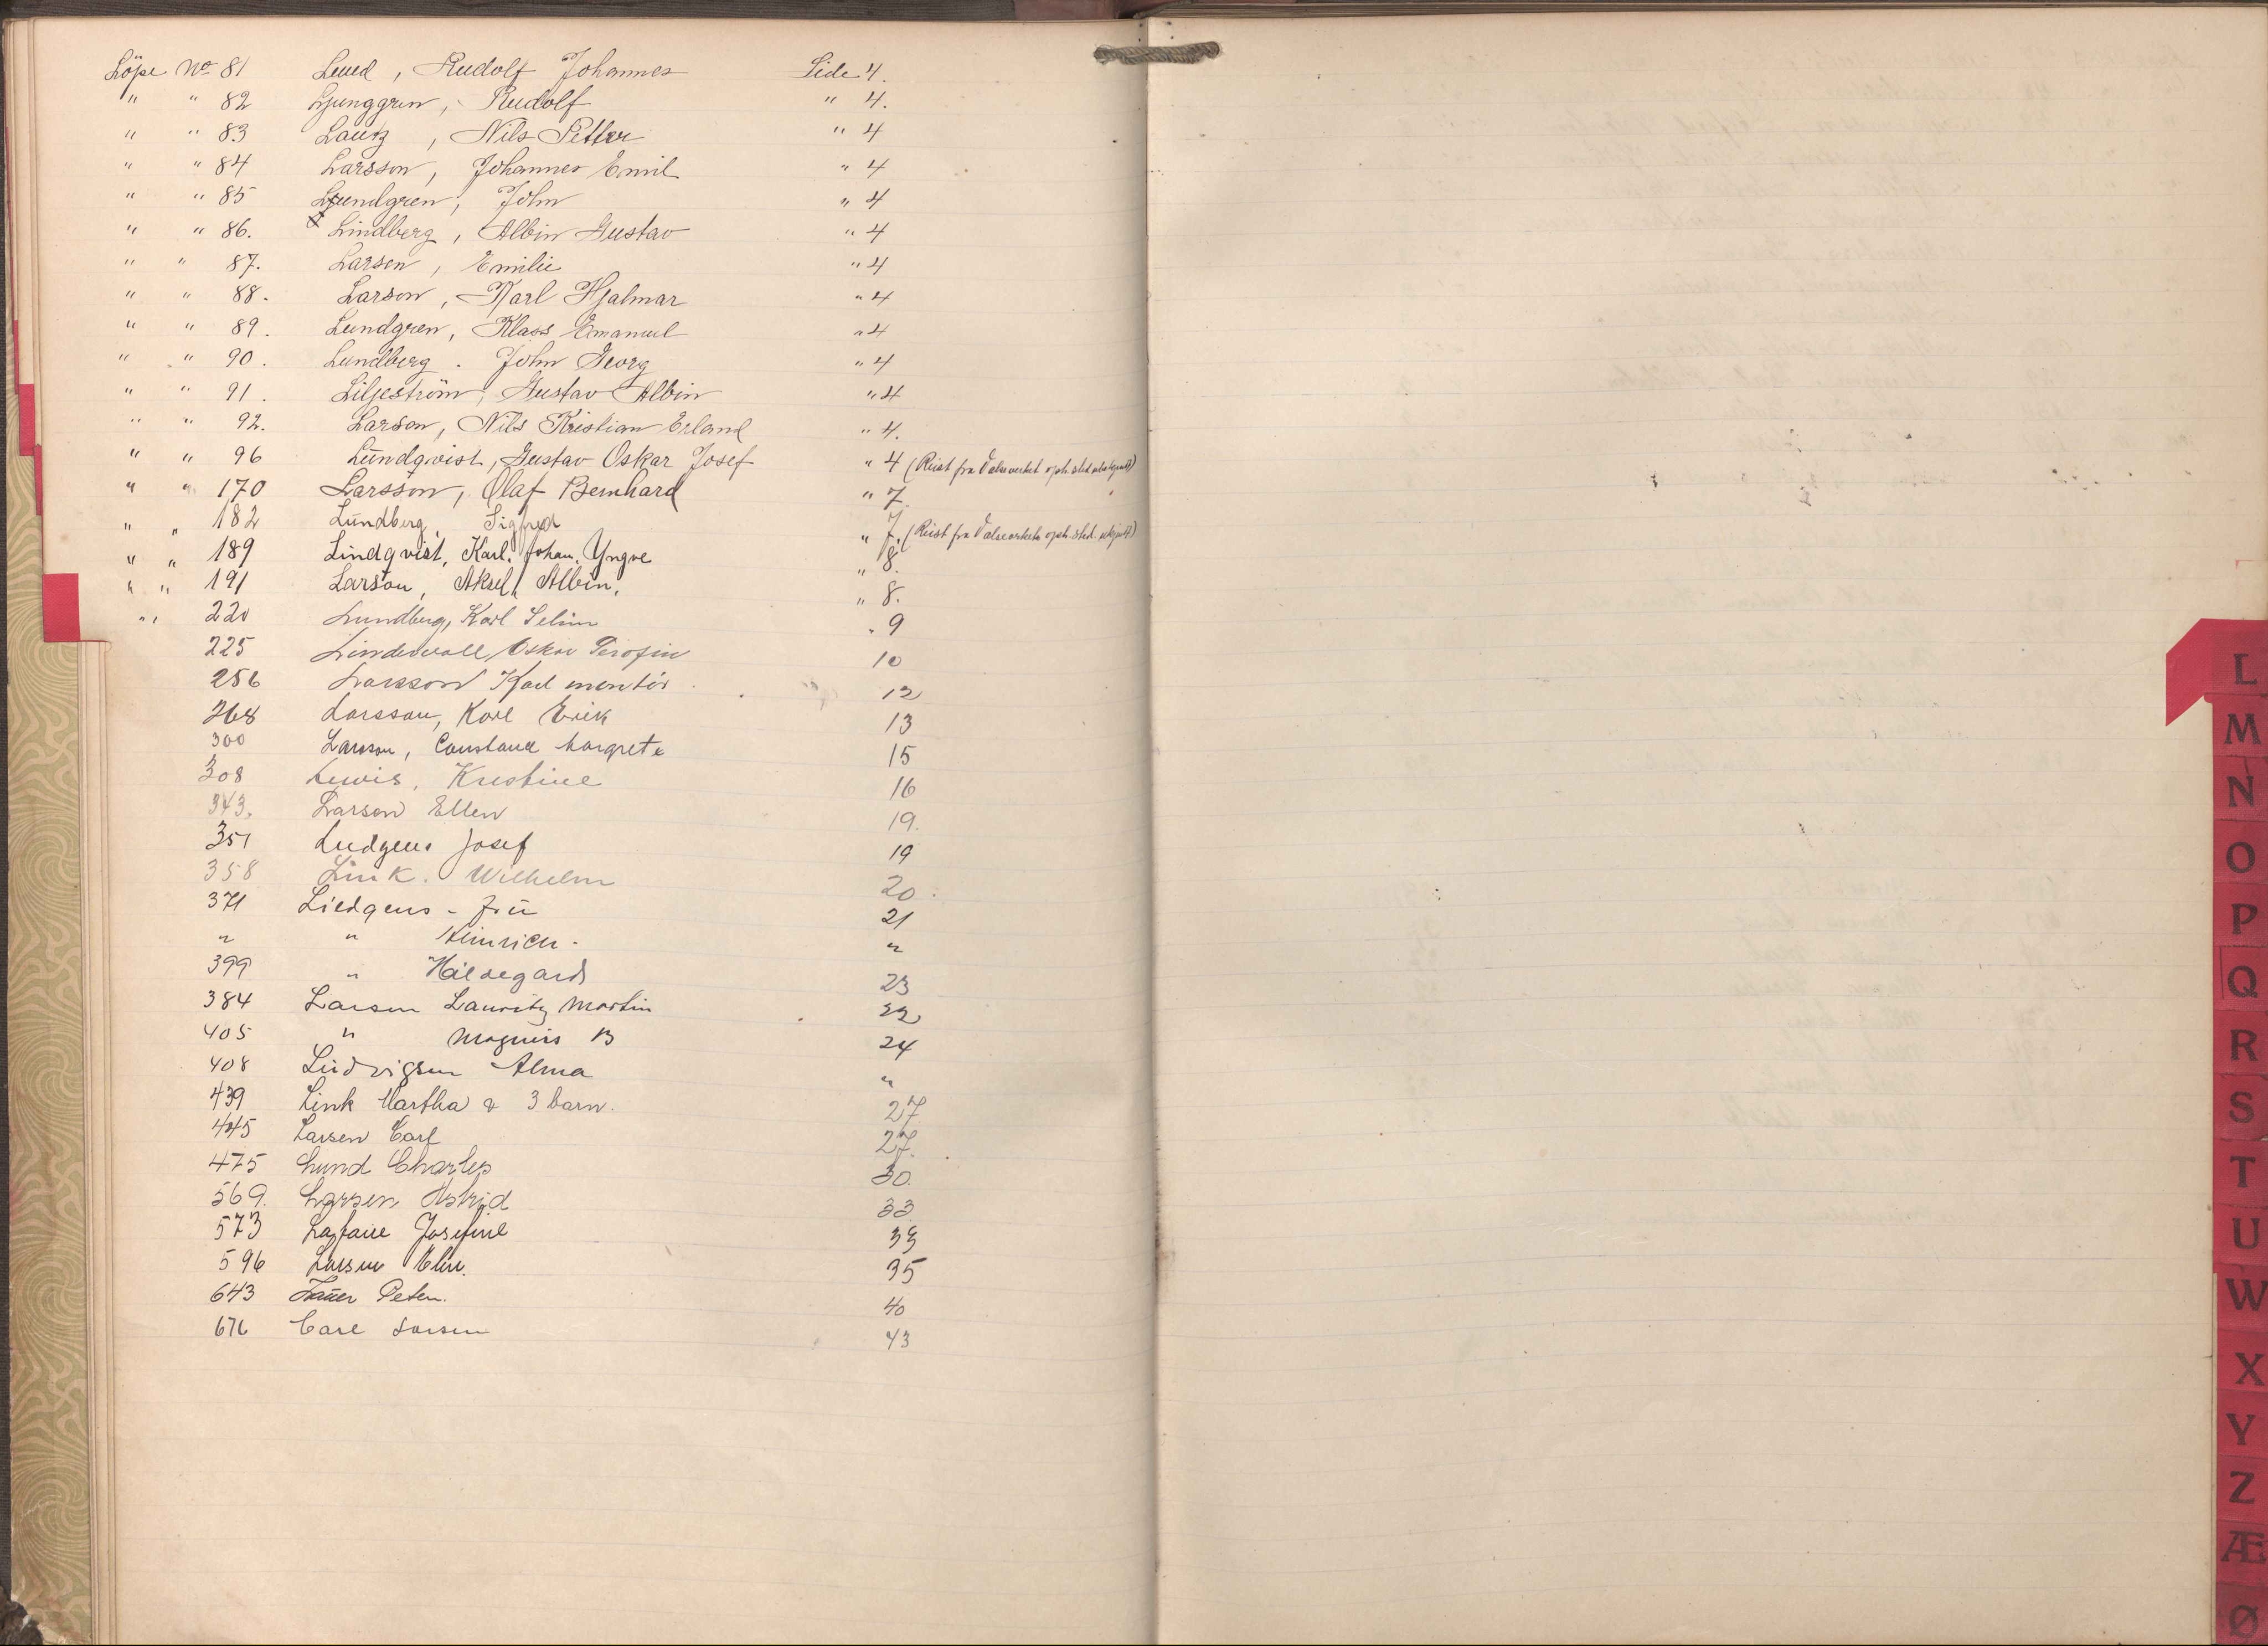 Löpe No 81 Lund, Rudolf Johannes Side 4.
" " 82 Ljunggren, Rudolf " 4.
" " 83 Lautz, Nils Petter " 4
" " 84 Larsson, Johannes Emil " 4
" " 85 Ljundgren, John " 4
" " 86. Lindberg, Albin Gustav " 4
" " 87. Larsen, Emilie " 4
" " 88. Larson, Karl Hjalmar " 4
" " 89. Lundgren, Klass Emanuel " 4
" " 90. Lundberg. John Georg " 4
" " 91. Liljeström, Gustav Albin " 4
" " 92. Larson, Nils Kristian Erland " 4.
" " 96 Lundqvist, Gustav Oskar Josef " 4 (Reist fra Valseverket oph. sted ubekjendt)
" " 170 Larsson, Olaf Bernhard " 7.
" " 182 Lundberg, Sigfred " 7. (Reist fra Valseverket oph. sted.
" " 189 Lindqvist, Karl Johan Yngve " 8.
" " 191 Larson, Aksel Albin. " 8.
" " 220 Lundberg, Karl Selim " 9
225 Lindewall Oskar 10
256 Larsson Karl montör 12
268 Larsson, Karl Erik 13
300 Larsson, Constance Margrete 15
308 Lewis, Kristine 16
343. Larson Ellen 19.
351 Ludgens Josef 19
358 Link. Wilhelm 20.
371 Liedgens - frü 21
" " Heinrich - "
399 " Hildegard 23
384 Larsen Lauritz Martin 22
405 " Magnus B 24
408 Ludvigsen Alma "
439 Link Martha & 3 barn. 27
445 Larsen Carl 27.
475 Lund Charles 30.
569. Larsen Astrid 33
573 Josefine 33
596 Larsen Elin. 35
643 Lauer Peter. 40
676 Carl Larsen 43
L
M
N
O
P
Q
R
S
T
U
W
X
Y
Z
Æ
Ø